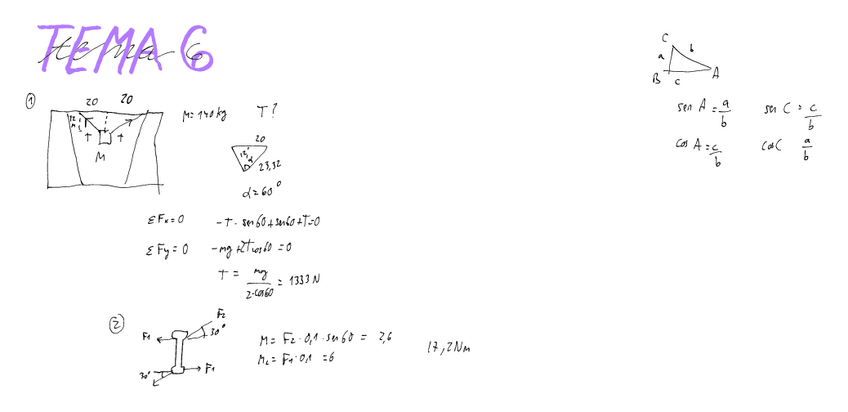 TEMA 6
tema 6
①
20 20
M=140kg T?
T T
M
20
23,32
α=60°
ΣFx=0 -T·sen60+sen60+T=0
ΣFy=0 -mg+2Tcos60=0
T = mg / 2·cos60 = 1333 N
②
F2
30°
F1
F1
30°
M = F2·0,1·sen60 = 2,6
M2 = F1·0,1 = 6
17,2Nm
C
a b
B c A
sen A = a/b sen C = c/b
cos A = c/b cos C a/b